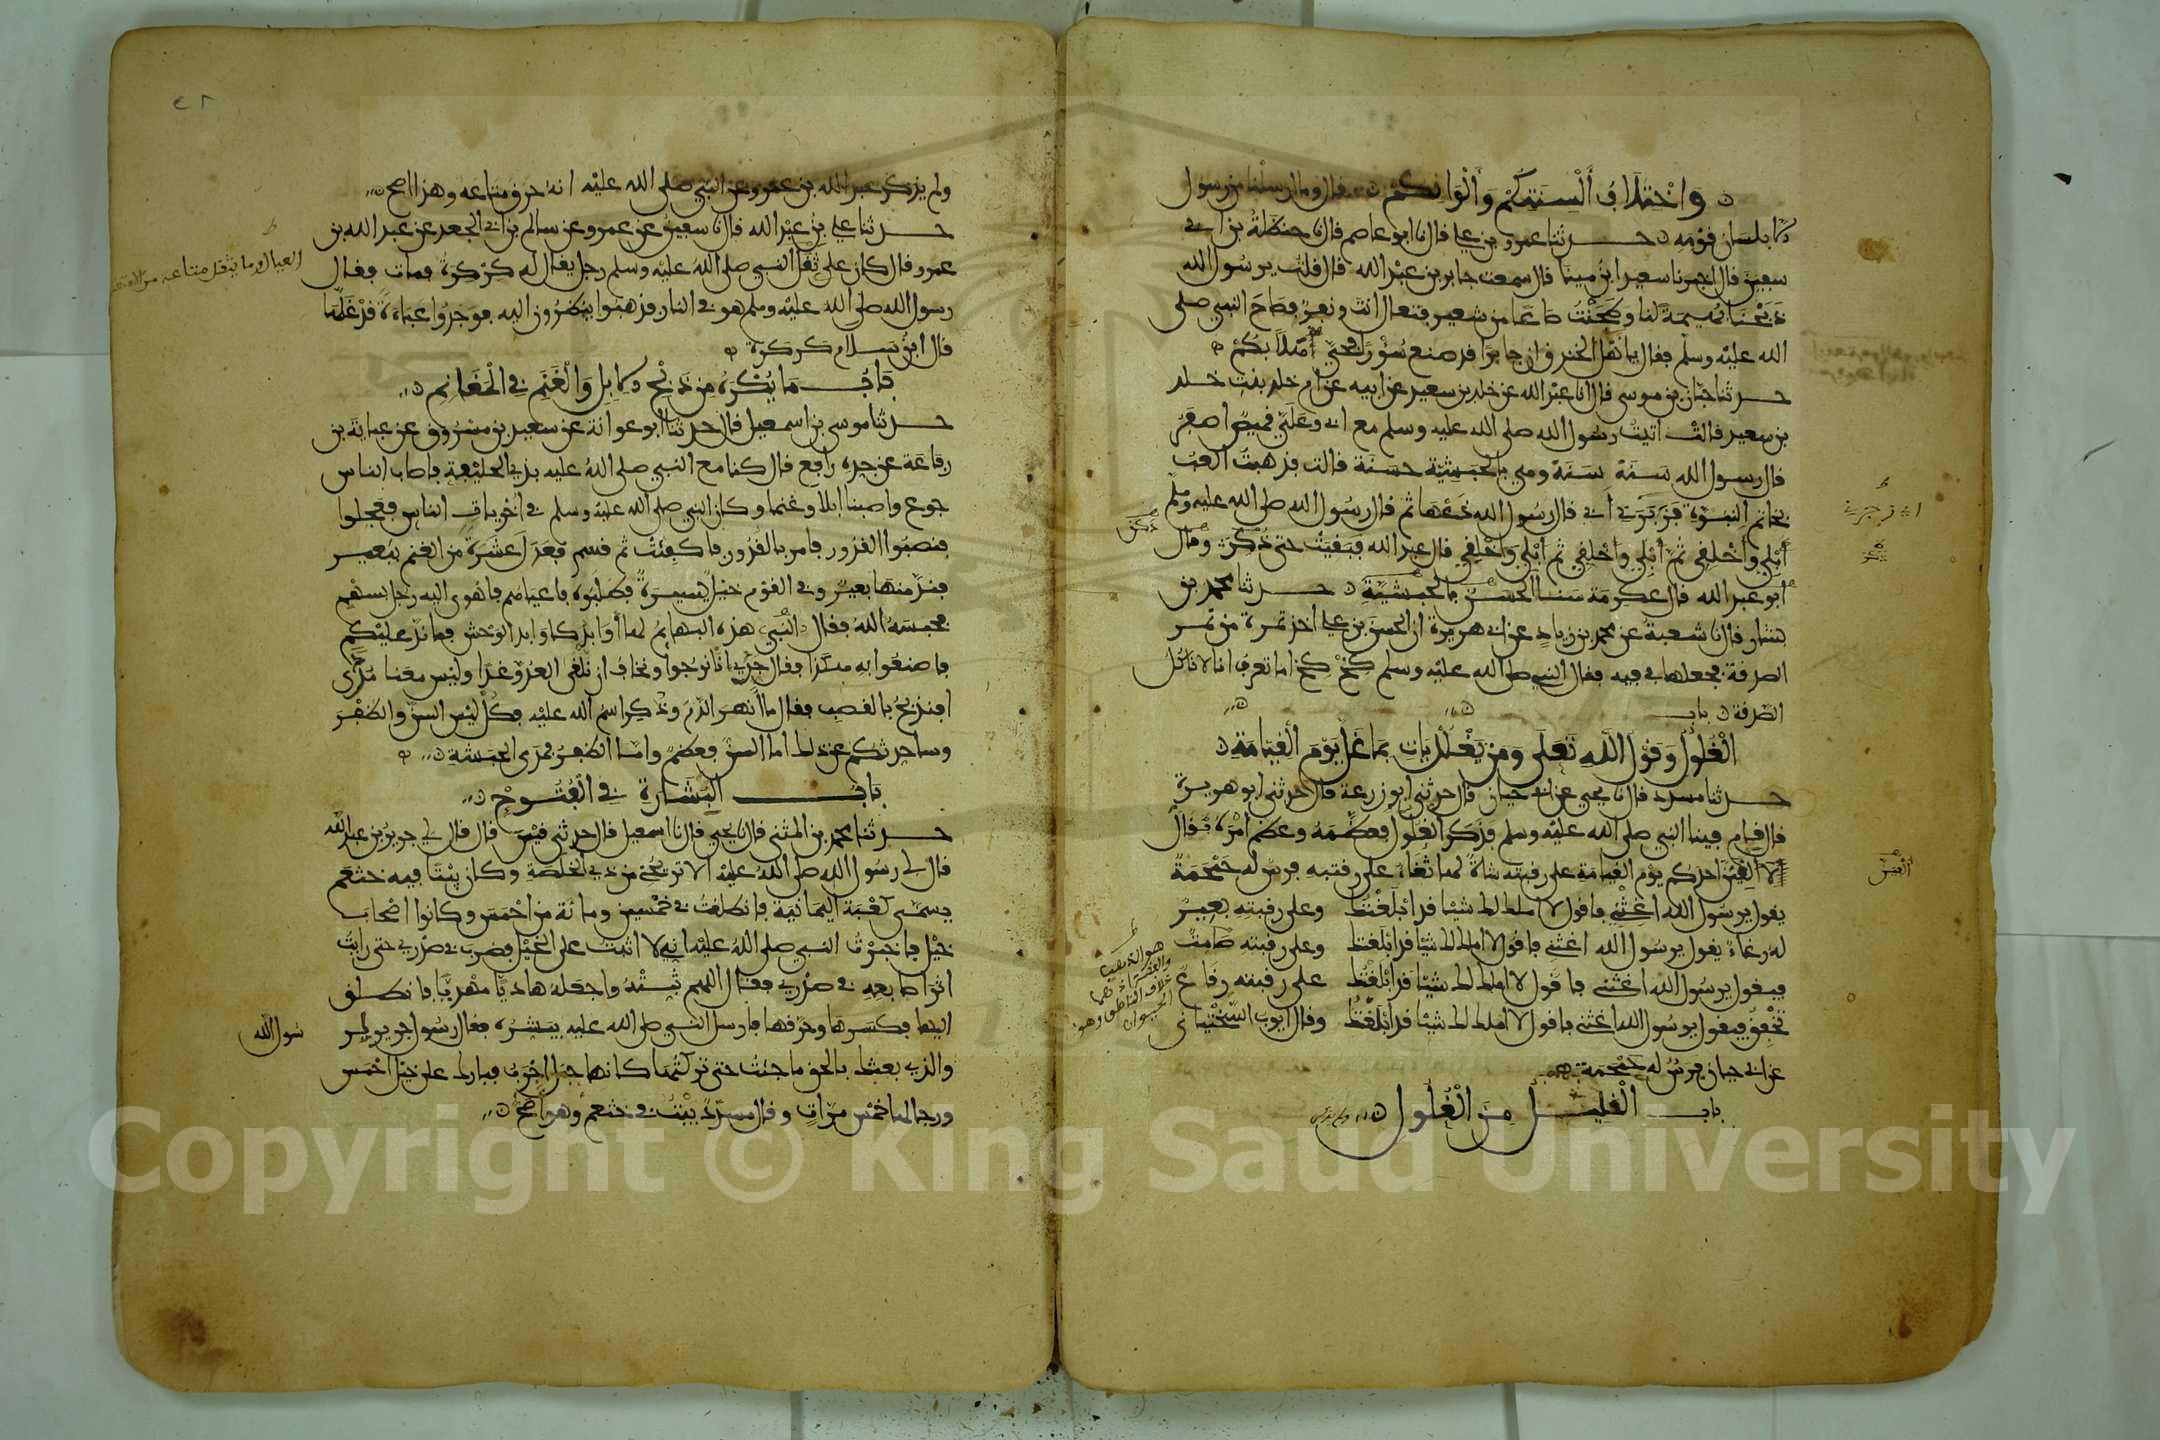 واختلاف ألسنتكم وألوانكم قال وما أرسلنا من رسول
الا بلسان قومه حدثنا عمرو بن علي قال نا ابو عاصم قال نا حنظلة بن ابي
سفين قال اخبرنا سعيد ابن مينا قال سمعت جابر بن عبد الله قال قلت يرسول الله
ذبحنا بهيمة لنا وطحنت صاعا من شعير فتعال انت ونفر فصاح النبي صلى
الله عليه وسلم فقال يا اهل الخندق ان جابرا قد صنع سؤرا فحي هلا بكم
حدثنا حبان بن موسى قال انا عبد الله عن خلد بن سعيد عن ابيه عن ام خلد بنت خلد
بن سعيد قالت أتيت رسول الله صلى الله عليه وسلم مع ابي وعلي قميص اصفر
قال رسول الله سنه سنه وهي بالحبشية حسنة قالت فذهبت العب
بخاتم النبوة فزبرني أبي قال رسول الله دعها ثم قال رسول الله صلى الله عليه وسلم
أبلي وأخلفي ثم أبلي وأخلفي ثم أبلي وأخلفي قال عبد الله فبقيت حتى ذكرت وقال
أبو عبد الله قال عكرمة سنا الحسن بالحبشية حدثنا محمد بن
بشار قال نا شعبة عن محمد بن زياد عن ابي هريرة ان الحسن بن علي اخذ تمرة من تمر
الصدقة فجعلها في فيه فقال النبي صلى الله عليه وسلم كخ كخ اما تعرف انا لا ناكل
الصدقة باب
الغلول وقول الله تعلى ومن يغلل يات بما غل يوم القيامة
حدثنا مسدد قال نا يحيى عن ابي حيان قال حدثني ابو زرعة قال حدثني ابو هريرة
قال قام فينا النبي صلى الله عليه وسلم فذكر الغلول فعظمه وعظم امره فقال
لا ألفين احدكم يوم القيامة على رقبته شاة لها ثغاء على رقبته فرس له حمحمة
يقول يرسول الله اغثني فاقول لا املك لك شيئا قد ابلغتك وعلى رقبته بعير
له رغاء يقول يرسول الله اغثني فاقول لا املك لك شيئا قد ابلغتك وعلى رقبته صامت
فيقول يرسول الله اغثني فاقول لا املك لك شيئا قد ابلغتك على رقبته رقاع
تخفق فيقول يرسول الله اغثني فاقول لا املك لك شيئا قد ابلغتك وقال ايوب السختياني
عن ابي حيان فرس له حمحمة
باب القليل من الغلول
ذكر
الفين
هو الذهب
والفضة
خلاف الناطق وهو
الحيوان
ولم يذكر عبد الله بن عمرو عن النبي صلى الله عليه انه حرق متاعه وهذا اصح
حدثنا علي بن عبد الله قال نا سفين عن عمرو عن سالم بن ابي الجعد عن عبد الله بن
عمرو قال كان على ثقل النبي صلى الله عليه وسلم رجل يقال له كركرة فمات فقال
رسول الله صلى الله عليه وسلم هو في النار فذهبوا ينظرون اليه فوجدوا عباءة قد غلها
قال ابن سلام كركرة
باب ما يكره من ذبح الابل والغنم في المغانم
حدثنا موسى بن اسمعيل قال حدثنا ابو عوانة عن سعيد بن مسروق عن عباية بن
رفاعة عن جده رافع قال كنا مع النبي صلى الله عليه بذي الحليفة فاصاب الناس
جوع واصبنا ابلا وغنما وكان النبي صلى الله عليه وسلم في اخريات الناس فعجلوا
فنصبوا القدور فامر بالقدور فاكفئت ثم قسم فعدل عشرة من الغنم ببعير
فند منها بعير وفي القوم خيل يسيرة فطلبوه فاعياهم فاهوى اليه رجل بسهم
فحبسه الله فقال النبي هذه البهائم لها أوابد كاوابد الوحش فما ند عليكم
فاصنعوا به هكذا فقال جدي انا نرجوا ونخاف ان نلقى العدو غدا وليس معنا مدى
افنذبح بالقصب فقال ما انهر الدم وذكر اسم الله عليه فكل ليس السن والظفر
وساحدثكم عن ذلك اما السن فعظم واما الظفر فمدى الحبشة
باب البشارة في الفتوح
حدثنا محمد بن المثنى قال نا يحيى قال نا اسمعيل قال حدثني قيس قال قال لي جرير بن عبد الله
قال لي رسول الله صلى الله عليه الا تريحني من ذي الخلصة وكان بيتا فيه خثعم
يسمى كعبة اليمانية فانطلقت في خمسين ومائة من احمس وكانوا اصحاب
خيل فاخبرت النبي صلى الله عليه اني لا اثبت على الخيل فضرب في صدري حتى رايت
اثر اصابعه في صدري فقال اللهم ثبته واجعله هاديا مهديا فانطلق
اليها فكسرها وحرقها فارسل النبي صلى الله عليه يبشره فقال رسول جرير لر
سول الله
والذي بعثك بالحق ما جئت حتى تركتها كانها جمل اجرب فبارك على خيل احمس
ورجالها خمس مرات وقال مسدد بيت في خثعم وهو اصح
العيال وما يثقل متاعه من الامتعة
Copyright © King Saud University